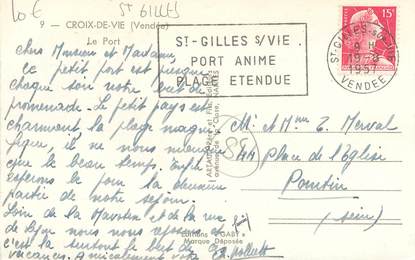 10 €
St GILLES
9 - CROIX-DE-VIE (Vendée)
Le Port
Chers Monsieur et Madame,
Ce petit port est presque
chaque soir notre but de
promenade. Le petit pays est
charmant, la plage magni
fique, il ne nous manque
que le beau temps. Enfin
espérons le pour la deuxième
partie de notre séjour.
Loin de la et de la rue
de Lyon nous nous reposons et
c'est là surtout le but de
vacances. Amicalement vôtre
ST-GILLES S/VIE
PORT ANIME
PLAGE ETENDUE
ST-GILLES-SUR-VIE
9 H
1957
VENDEE
15F
M. et Mme E. Merval
44 Place de l'Eglise
Pantin
(Seine)
85
Editions "GABY"
Marque Déposée